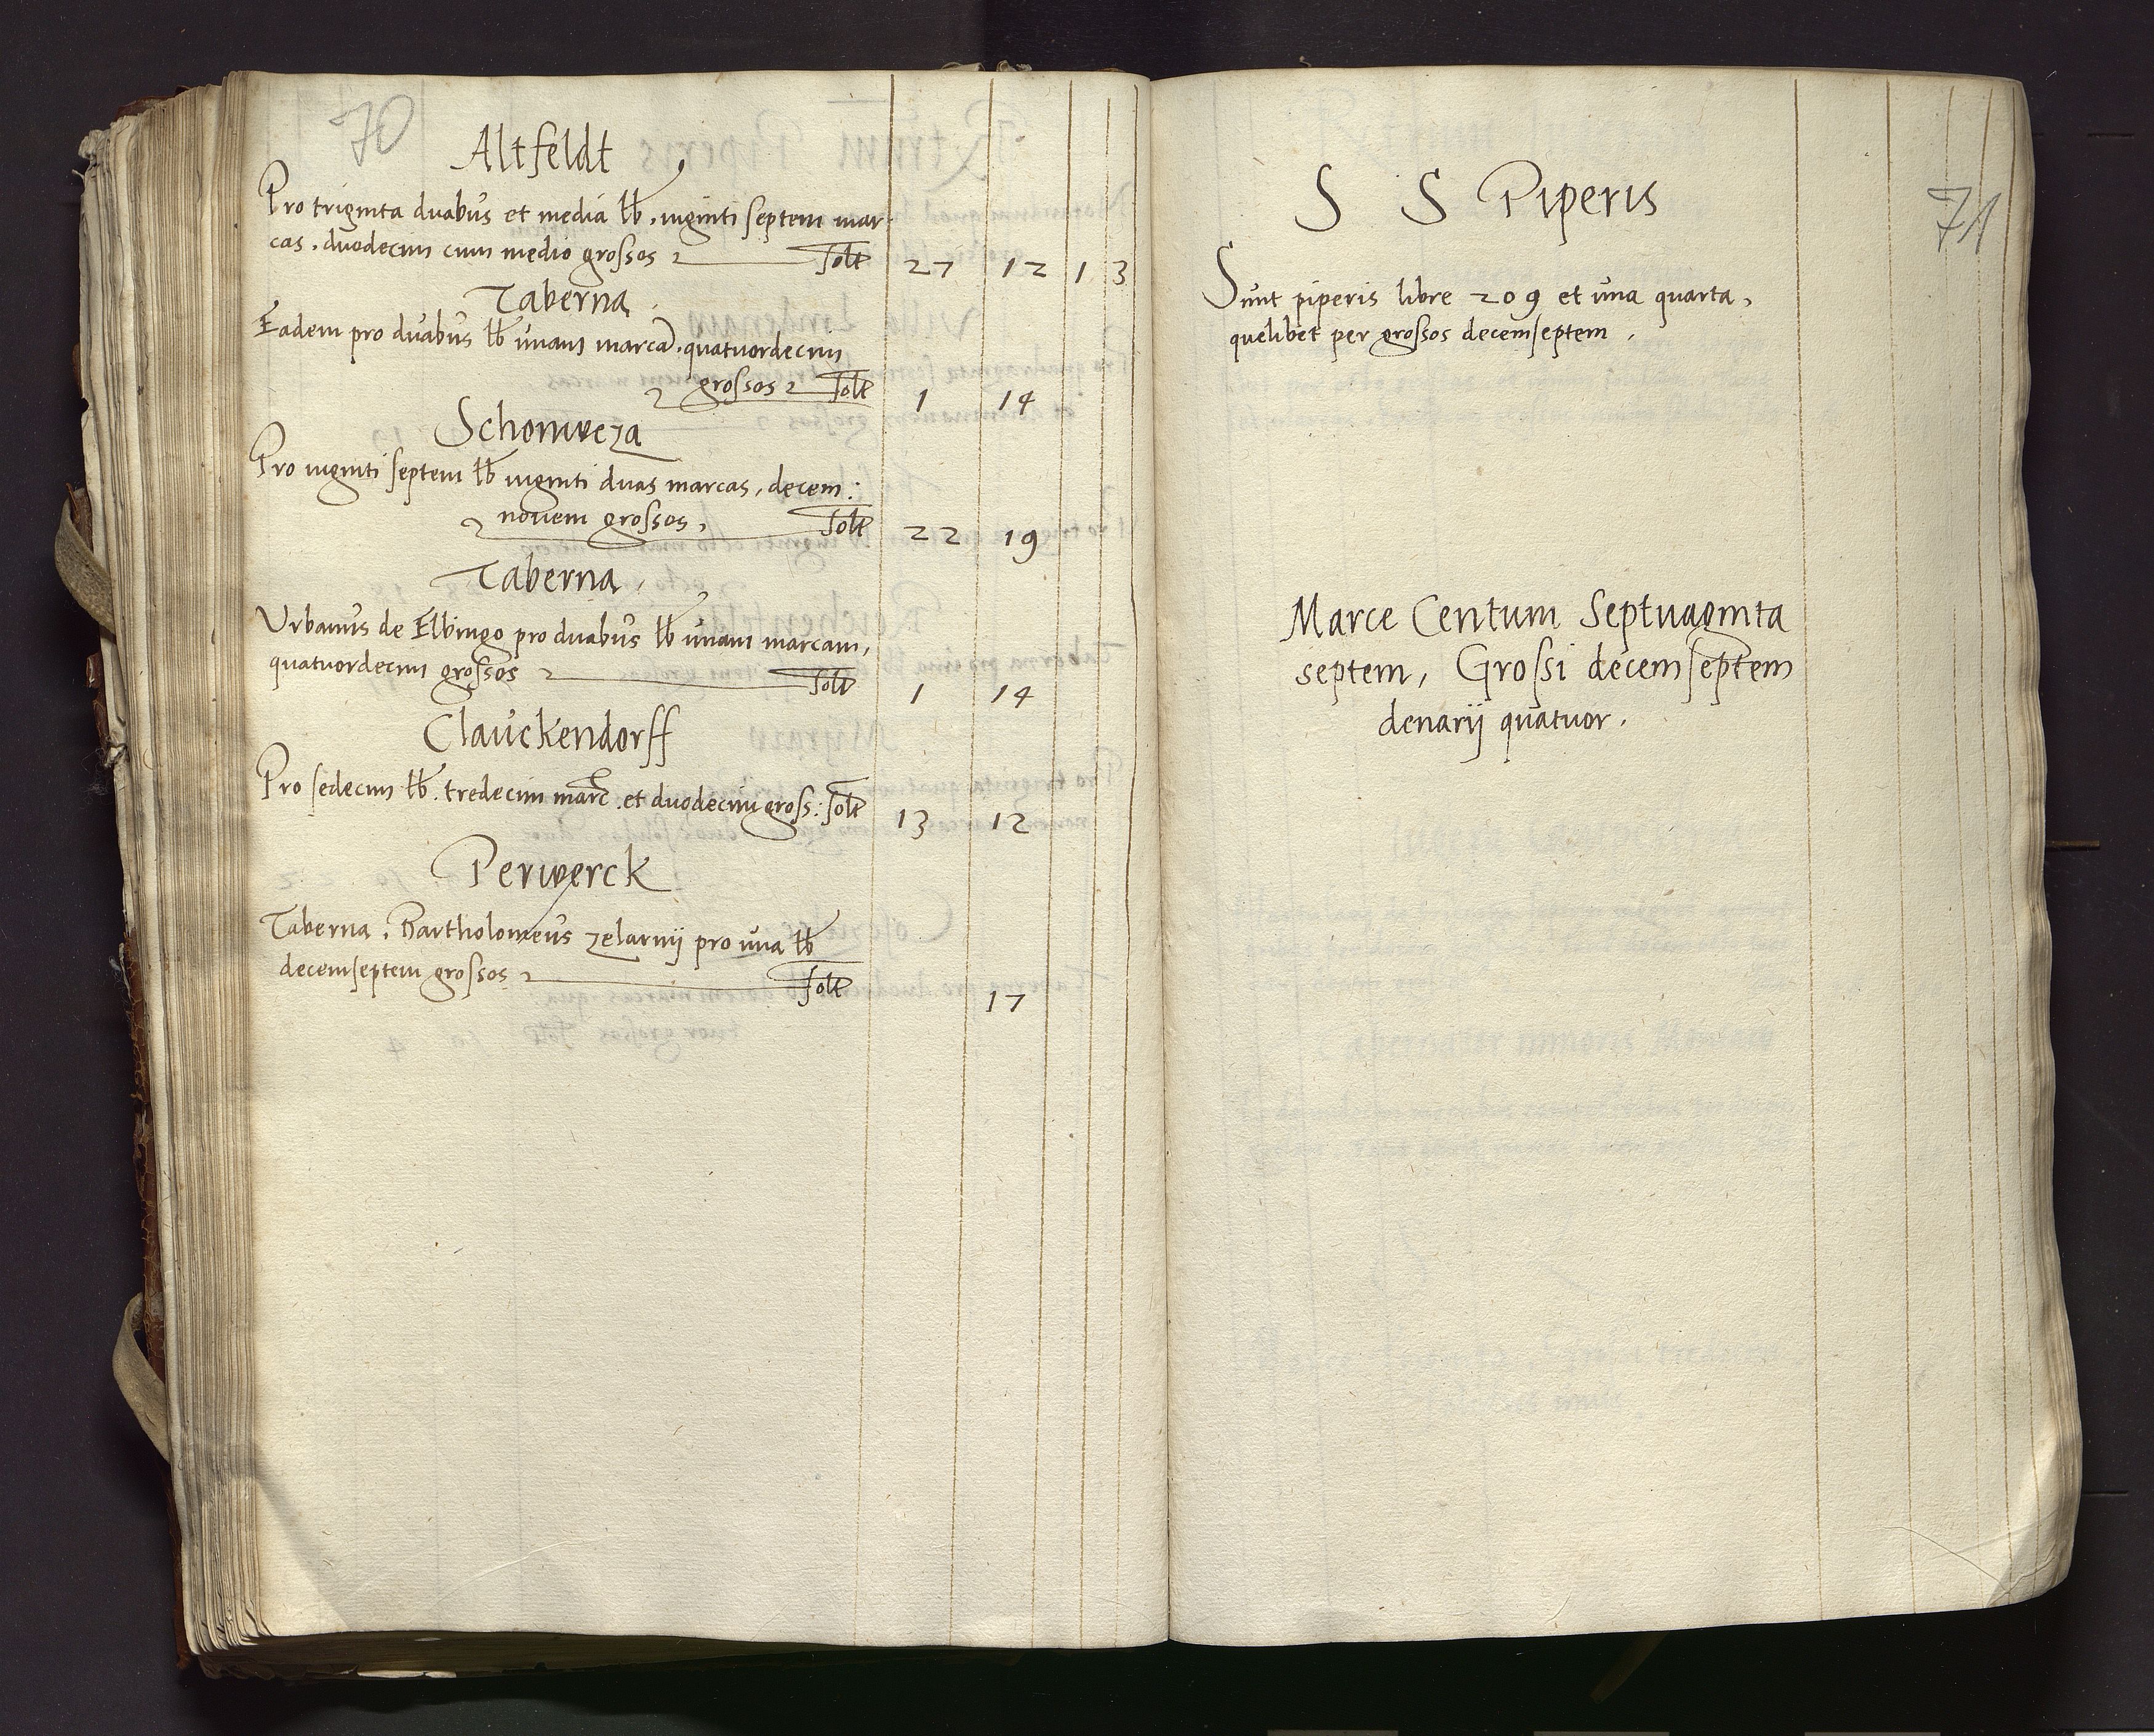 70
Altfeldt
Pro triginta duabus et media lb. viginti septem mar-
cas. duodecim cum medio grossos solt 27 12 1 3
Taberna.
Eadem pro duabus lb unam marcam. quatuordecim
grossos solt 1 14
Schonweza
Pro viginti septem lb viginti duas marcas, decem:
novem grossos, solt 22 19
Taberna,
Urbanus de Elbingo pro duabus lb unam marcam,
quatuordecim grossos solt 1 14
Clauckendorff
Pro sedecim lb. tredecim marc. et duodecim gross: solt 13 12
Perwerck
Taberna. Bartholomeus zelarnij pro una lb
decemseptem grossos solt 17
71
S S Piperis
Sunt piperis libre 209 et una quarta,
quelibet per grossos decemseptem.
Marce Centum Septuaginta
septem, Grossi decemseptem
denarij quatuor.